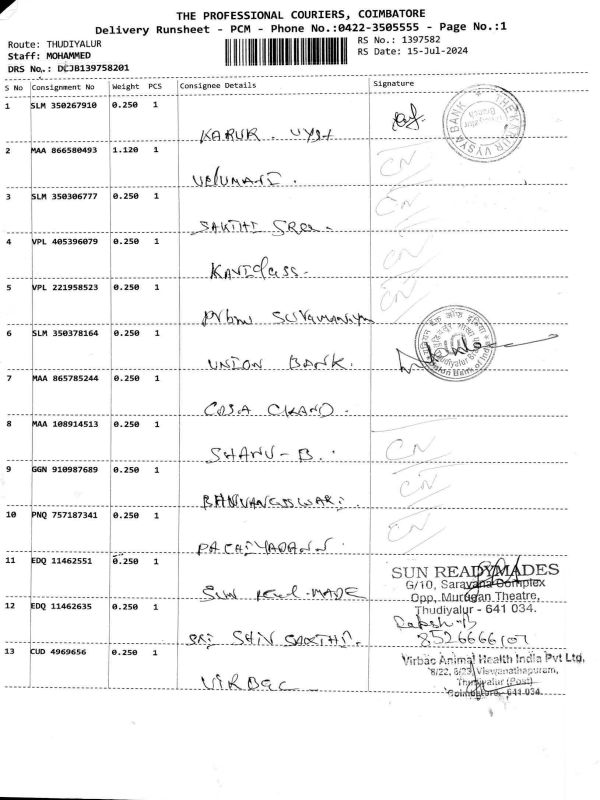 THE PROFESSIONAL COURIERS, COIMBATORE
Delivery Runsheet - PCM - Phone No.:0422-3505555 - Page No.:1
Route: THUDIYALUR
Staff: MOHAMMED
DRS No.: DCJB139758201
RS No.: 1397582
RS Date: 15-Jul-2024
S No Consignment No Weight PCS Consignee Details Signature
1 SLM 350267910 0.250 1 KARUR. VYSH
2 MAA 866580493 1.120 1 VELUMANI. CN
3 SLM 350306777 0.250 1 SAKTHI SREE. CN
4 VPL 405396079 0.250 1 CN
5 VPL 221958523 0.250 1 CN
6 SLM 350378164 0.250 1 UNION BANK.
7 MAA 865785244 0.250 1
8 MAA 108914513 0.250 1 SHANU-B. CN
9 GGN 910987689 0.250 1 CN
10 PNQ 757187341 0.250 1 CN
11 EDQ 11462551 0.250 1 SUN
SUN READYMADES
G/10, Saravana Complex
Opp, Murugan Theatre,
Thudiyalur - 641 034.
12 EDQ 11462635 0.250 1 SRI
13 CUD 4969656 0.250 1 VIRBAC
Virbac Animal Health India Pvt Ltd,
Viswanathapuram,
Thudiyalur (Post)
Coimbatore- 641 034